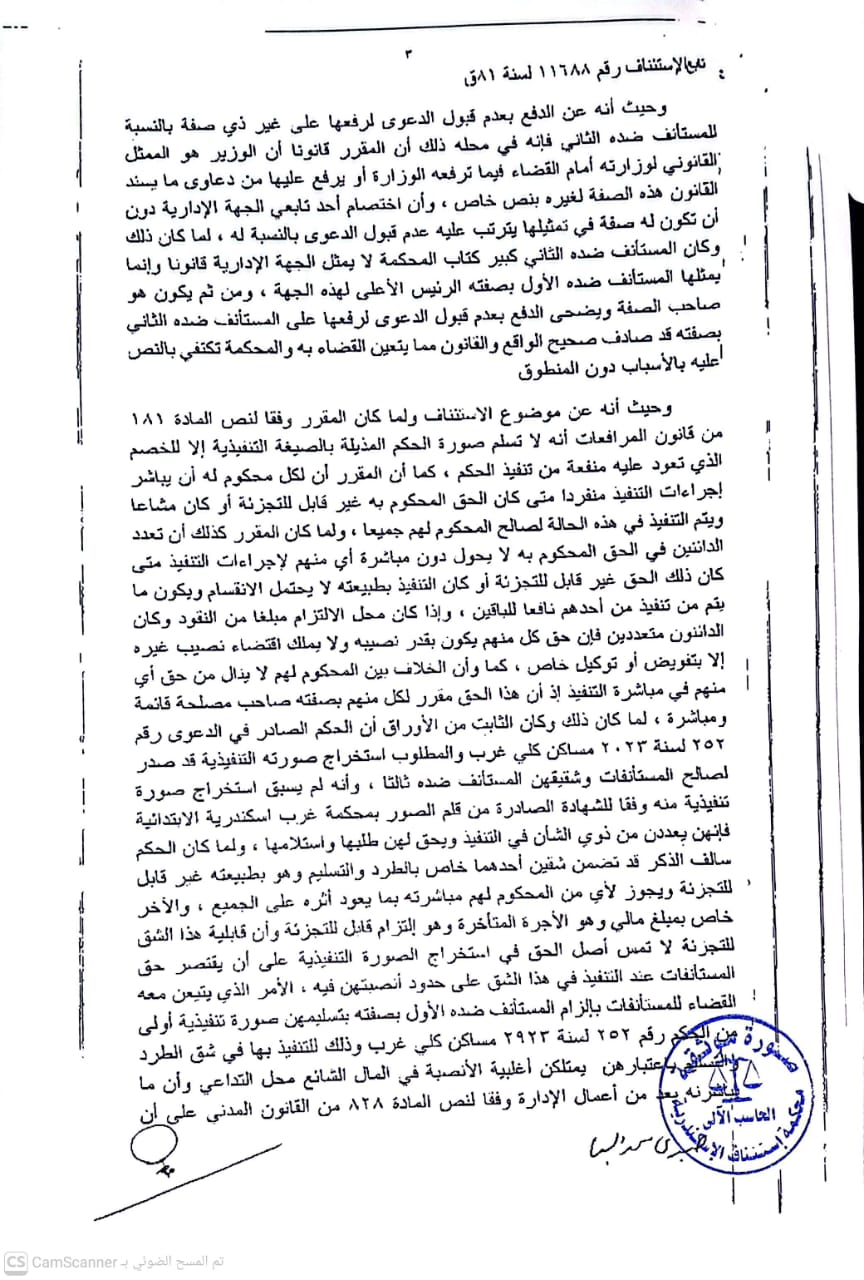 ٣
تابع الإستئناف رقم ١١٦٨٨ لسنة ٨١ق
وحيث أنه عن الدفع بعدم قبول الدعوى لرفعها على غير ذي صفة بالنسبة
للمستأنف ضده الثاني فإنه في محله ذلك أن المقرر قانونا أن الوزير هو الممثل
القانوني لوزارته أمام القضاء فيما ترفعه الوزارة أو يرفع عليها من دعاوى ما يسند
القانون هذه الصفة لغيره بنص خاص ، وأن اختصام أحد تابعي الجهة الإدارية دون
أن تكون له صفة في تمثيلها يترتب عليه عدم قبول الدعوى بالنسبة له ، لما كان ذلك
وكان المستأنف ضده الثاني كبير كتاب المحكمة لا يمثل الجهة الإدارية قانونا وإنما
يمثلها المستأنف ضده الأول بصفته الرئيس الأعلى لهذه الجهة ، ومن ثم يكون هو
صاحب الصفة ويضحى الدفع بعدم قبول الدعوى لرفعها على المستأنف ضده الثاني
بصفته قد صادف صحيح الواقع والقانون مما يتعين القضاء به والمحكمة تكتفي بالنص
عليه بالأسباب دون المنطوق
وحيث أنه عن موضوع الاستئناف ولما كان المقرر وفقا لنص المادة ١٨١
من قانون المرافعات أنه لا تسلم صورة الحكم المذيلة بالصيغة التنفيذية إلا للخصم
الذي تعود عليه منفعة من تنفيذ الحكم ، كما أن المقرر أن لكل محكوم له أن يباشر
إجراءات التنفيذ منفردا متى كان الحق المحكوم به غير قابل للتجزئة أو كان مشاعا
ويتم التنفيذ في هذه الحالة لصالح المحكوم لهم جميعا ، ولما كان المقرر كذلك أن تعدد
الدائنين في الحق المحكوم به لا يحول دون مباشرة أي منهم لإجراءات التنفيذ متى
كان ذلك الحق غير قابل للتجزئة أو كان التنفيذ بطبيعته لا يحتمل الانقسام ويكون ما
يتم من تنفيذ من أحدهم نافعا للباقين ، وإذا كان محل الالتزام مبلغا من النقود وكان
الدائنون متعددين فإن حق كل منهم يكون بقدر نصيبه ولا يملك اقتضاء نصيب غيره
إلا بتفويض أو توكيل خاص ، كما وأن الخلاف بين المحكوم لهم لا ينال من حق أي
منهم في مباشرة التنفيذ إذ أن هذا الحق مقرر لكل منهم بصفته صاحب مصلحة قائمة
ومباشرة ، لما كان ذلك وكان الثابت من الأوراق أن الحكم الصادر في الدعوى رقم
٢٥٢ لسنة ٢٠٢٣ مساكن كلي غرب والمطلوب استخراج صورته التنفيذية قد صدر
لصالح المستأنفات وشقيقهن المستأنف ضده ثالثا ، وأنه لم يسبق استخراج صورة
تنفيذية منه وفقا للشهادة الصادرة من قلم الصور بمحكمة غرب اسكندرية الابتدائية
فإنهن يعددن من ذوي الشأن في التنفيذ ويحق لهن طلبها واستلامها ، ولما كان الحكم
سالف الذكر قد تضمن شقين أحدهما خاص بالطرد والتسليم وهو بطبيعته غير قابل
للتجزئة ويجوز لأي من المحكوم لهم مباشرته بما يعود أثره على الجميع ، والأخر
خاص بمبلغ مالي وهو الأجرة المتأخرة وهو إلتزام قابل للتجزئة وأن قابلية هذا الشق
للتجزئة لا تمس أصل الحق في استخراج الصورة التنفيذية على أن يقتصر حق
المستأنفات عند التنفيذ في هذا الشق على حدود أنصبتهن فيه ، الأمر الذي يتيعن معه
القضاء للمستأنفات بإلزام المستأنف ضده الأول بصفته بتسليمهن صورة تنفيذية أولى
من الحكم رقم ٢٥٢ لسنة ٢٩٢٣ مساكن كلي غرب وذلك للتنفيذ بها في شق الطرد
والتسليم باعتبارهن يمتلكن أغلبية الأنصبة في المال الشائع محل التداعي وأن ما
يباشرنه يعد من أعمال الإدارة وفقا لنص المادة ٨٢٨ من القانون المدني على أن
صورة
الحاسب الآلي
محكمة إستئناف الإسكندرية
CS CamScanner تم المسح الضوئي بـ